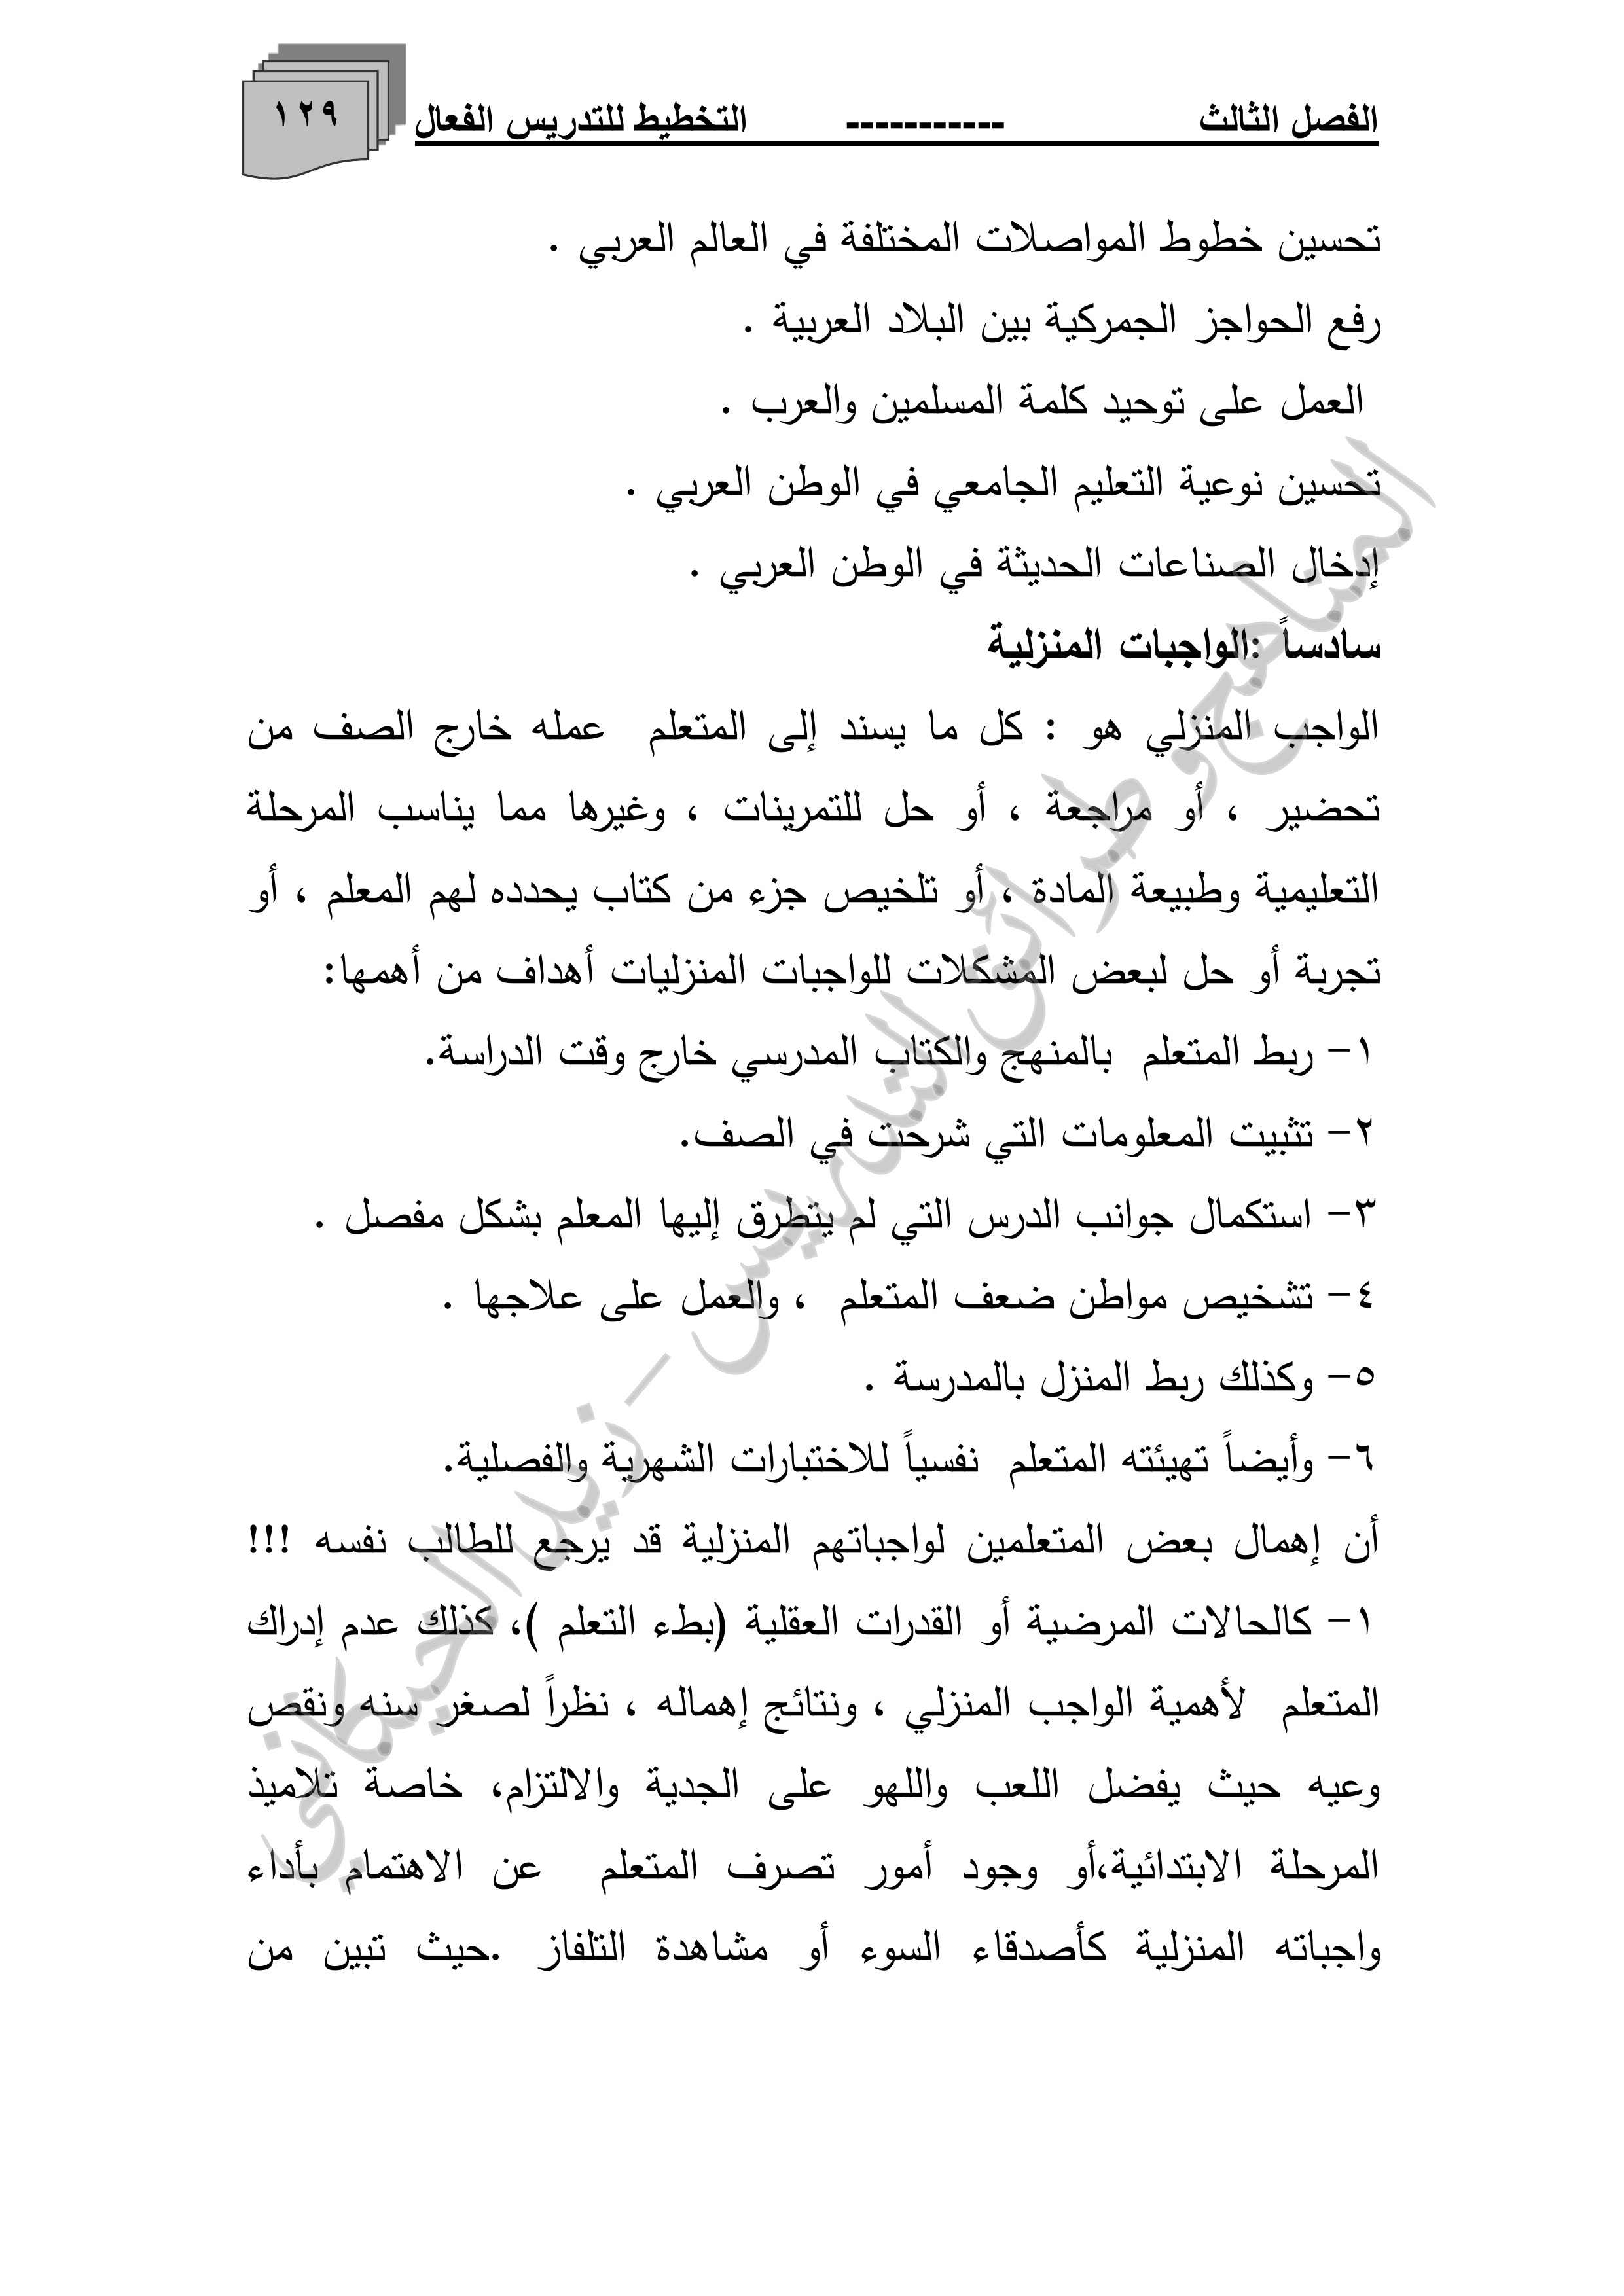 الفصل الثالث ----------- التخطيط للتدريس الفعال ١٢٩
تحسين خطوط المواصلات المختلفة في العالم العربي .
رفع الحواجز الجمركية بين البلاد العربية .
العمل على توحيد كلمة المسلمين والعرب .
تحسين نوعية التعليم الجامعي في الوطن العربي .
إدخال الصناعات الحديثة في الوطن العربي .
سادساً :الواجبات المنزلية
الواجب المنزلي هو : كل ما يسند إلى المتعلم عمله خارج الصف من
تحضير ، أو مراجعة ، أو حل للتمرينات ، وغيرها مما يناسب المرحلة
التعليمية وطبيعة المادة ، أو تلخيص جزء من كتاب يحدده لهم المعلم ، أو
تجربة أو حل لبعض المشكلات للواجبات المنزليات أهداف من أهمها:
١- ربط المتعلم بالمنهج والكتاب المدرسي خارج وقت الدراسة.
٢- تثبيت المعلومات التي شرحت في الصف.
٣- استكمال جوانب الدرس التي لم يتطرق إليها المعلم بشكل مفصل .
٤- تشخيص مواطن ضعف المتعلم ، والعمل على علاجها .
٥- وكذلك ربط المنزل بالمدرسة .
٦- وأيضاً تهيئته المتعلم نفسياً للاختبارات الشهرية والفصلية.
أن إهمال بعض المتعلمين لواجباتهم المنزلية قد يرجع للطالب نفسه !!!
١- كالحالات المرضية أو القدرات العقلية (بطء التعلم )، كذلك عدم إدراك
المتعلم لأهمية الواجب المنزلي ، ونتائج إهماله ، نظراً لصغر سنه ونقص
وعيه حيث يفضل اللعب واللهو على الجدية والالتزام، خاصة تلاميذ
المرحلة الابتدائية،أو وجود أمور تصرف المتعلم عن الاهتمام بأداء
واجباته المنزلية كأصدقاء السوء أو مشاهدة التلفاز .حيث تبين من
المناهج وطرائق التدريس - زيد الخيكاني